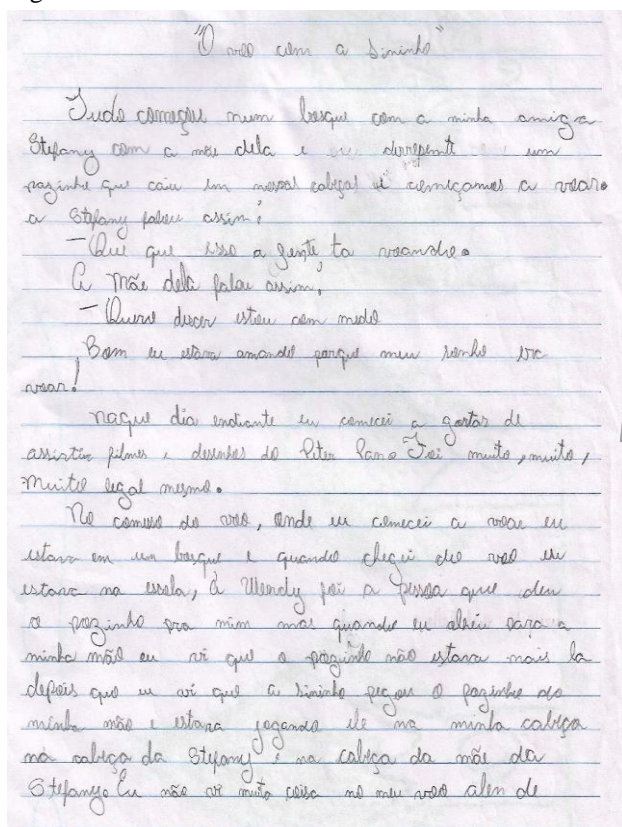 "O voo com a Sininho"
Tudo começou num bosque com a minha amiga
Stefany com a mãe dela e derrepente um
pozinho que caiu em nossas cabeças e começamos a voar.
a Stefany falou assim:
— Que que isso a gente ta voando.
A mãe dela falou assim,
— Quero descer estou com medo
Bom eu estava amando porque meu sonho era
voar!
naque dia endiante eu comecei a gostar de
assistir filmes e desenhos do Peter Pan. Foi muito, muito,
muito legal mesmo.
No comeso do voo, onde eu comecei a voar eu
estava em um bosque e quando chegei do voo eu
estava na escola, A Wendy foi a pessoa que deu
o pozinho pra mim mas quando eu abri para a
minha mão eu vi que o pozinho não estava mais la
depois que eu vi que a Sininho pegou o pozinho da
minha mão e estava jogando ele na minha cabeça
na cabeça da Stefany e na cabeça da mãe da
Stefany. Eu não vi muita coisa no meu voo alen de